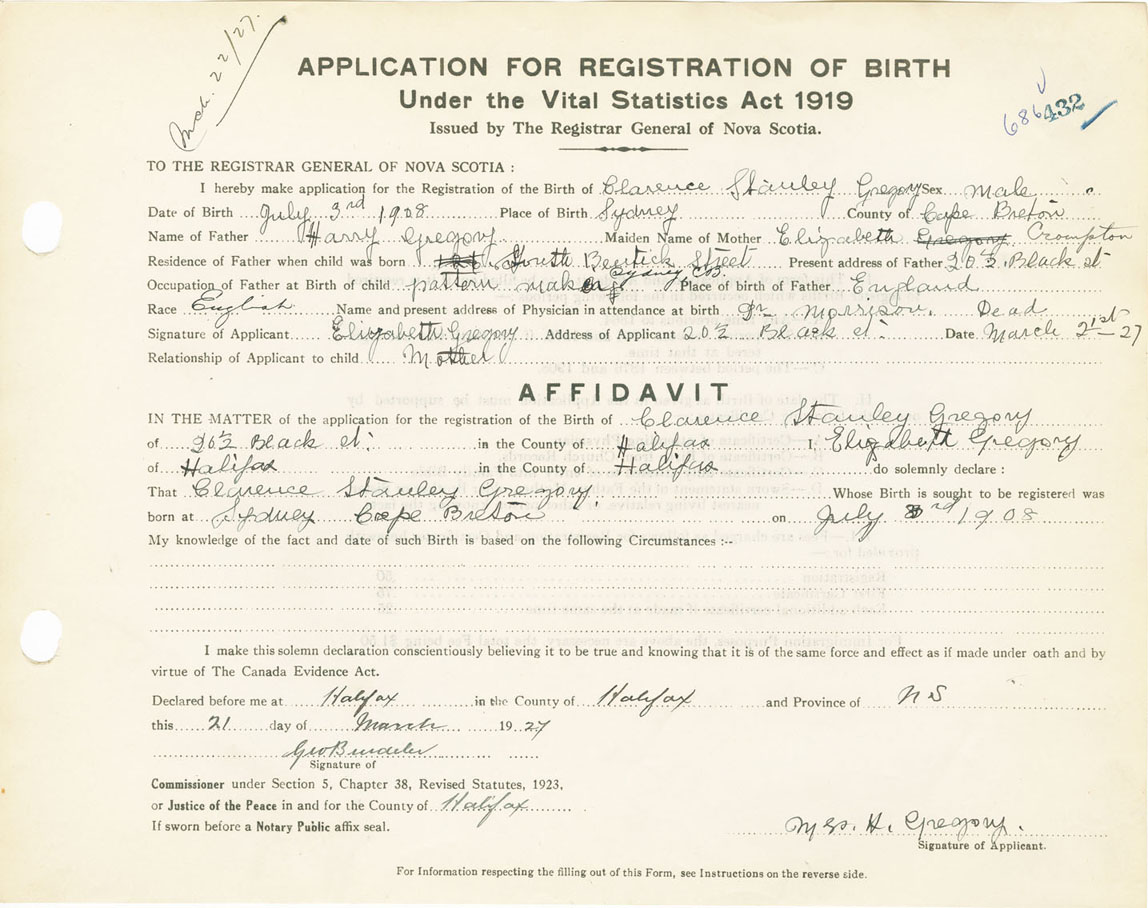 Mch. 22/27.
APPLICATION FOR REGISTRATION OF BIRTH
Under the Vital Statistics Act 1919
Issued by The Registrar General of Nova Scotia.
686 432
TO THE REGISTRAR GENERAL OF NOVA SCOTIA :
I hereby make application for the Registration of the Birth of Clarence Stanley Gregory Sex Male
Date of Birth July 3rd 1908 Place of Birth Sydney County of Cape Breton
Name of Father Harry Gregory Maiden Name of Mother Elizabeth Gregory Crompton
Residence of Father when child was born South Bentick Street Present address of Father 20½ Black st
Sydney CB
Occupation of Father at Birth of child pattern making Place of birth of Father England
Race English Name and present address of Physician in attendance at birth Dr Morrison. Dead
Signature of Applicant Elizabeth Gregory Address of Applicant 20½ Black st. Date March 21st 27
Relationship of Applicant to child Mother
AFFIDAVIT
IN THE MATTER of the application for the registration of the Birth of Clarence Stanley Gregory
of 20½ Black st. in the County of Halifax I. Elizabeth Gregory
of Halifax in the County of Halifax do solemnly declare :
That Clarence Stanley Gregory. Whose Birth is sought to be registered was
born at Sydney Cape Breton on July 3rd 1908
My knowledge of the fact and date of such Birth is based on the following Circumstances :--
I make this solemn declaration conscientiously believing it to be true and knowing that it is of the same force and effect as if made under oath and by
virtue of The Canada Evidence Act.
Declared before me at Halifax in the County of Halifax and Province of N S
this 21 day of March 1927
Signature of
Commissioner under Section 5, Chapter 38, Revised Statutes, 1923,
or Justice of the Peace in and for the County of Halifax
If sworn before a Notary Public affix seal.
Mrs. H. Gregory.
Signature of Applicant.
For Information respecting the filling out of this Form, see Instructions on the reverse side.